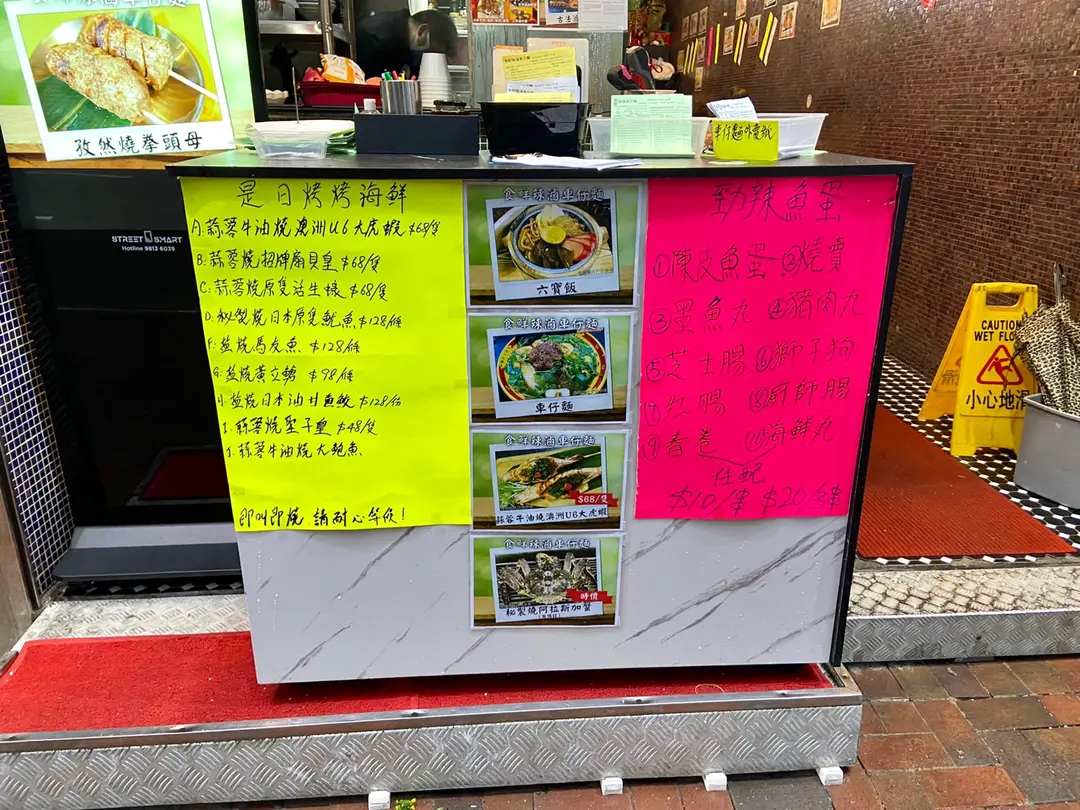 孜然燒拳頭母
STREET SMART
Hotline 9613 6039
是日烤烤海鮮
A. 蒜蓉牛油燒澳洲U6大虎蝦 $68/隻
B. 蒜蓉燒招牌扇貝皇 $68/隻
C. 蒜蓉燒原隻活生蠔 $68/隻
D. 秘製燒日本原隻魷魚 $128/條
F. 盐燒馬友魚 $128/條
G. 盐燒黃立鯧 $98/條
H. 盐燒日本油甘魚鮫 $128/份
I. 蒜蓉燒聖子皇 $48/隻
J. 蒜蓉牛油燒大鮑魚
即叫即燒 請耐心等候!
食鮮辣滷車仔麵
六寶飯
食鮮辣滷車仔麵
車仔麵
食鮮辣滷車仔麵
$68/隻
蒜蓉牛油燒澳洲U6大虎蝦
食鮮辣滷車仔麵
時價
秘製燒阿拉斯加蟹
車仔麵外賣紙
勁辣魚蛋
①陳皮魚蛋 ②燒賣
③墨魚丸 ④豬肉丸
⑤芝士腸 ⑥獅子狗
⑦紅腸 ⑧廚師腸
⑨香卷 ⑩海鮮丸
任配
$10/串 $20 3串
CAUTION
WET FLOOR
小心地